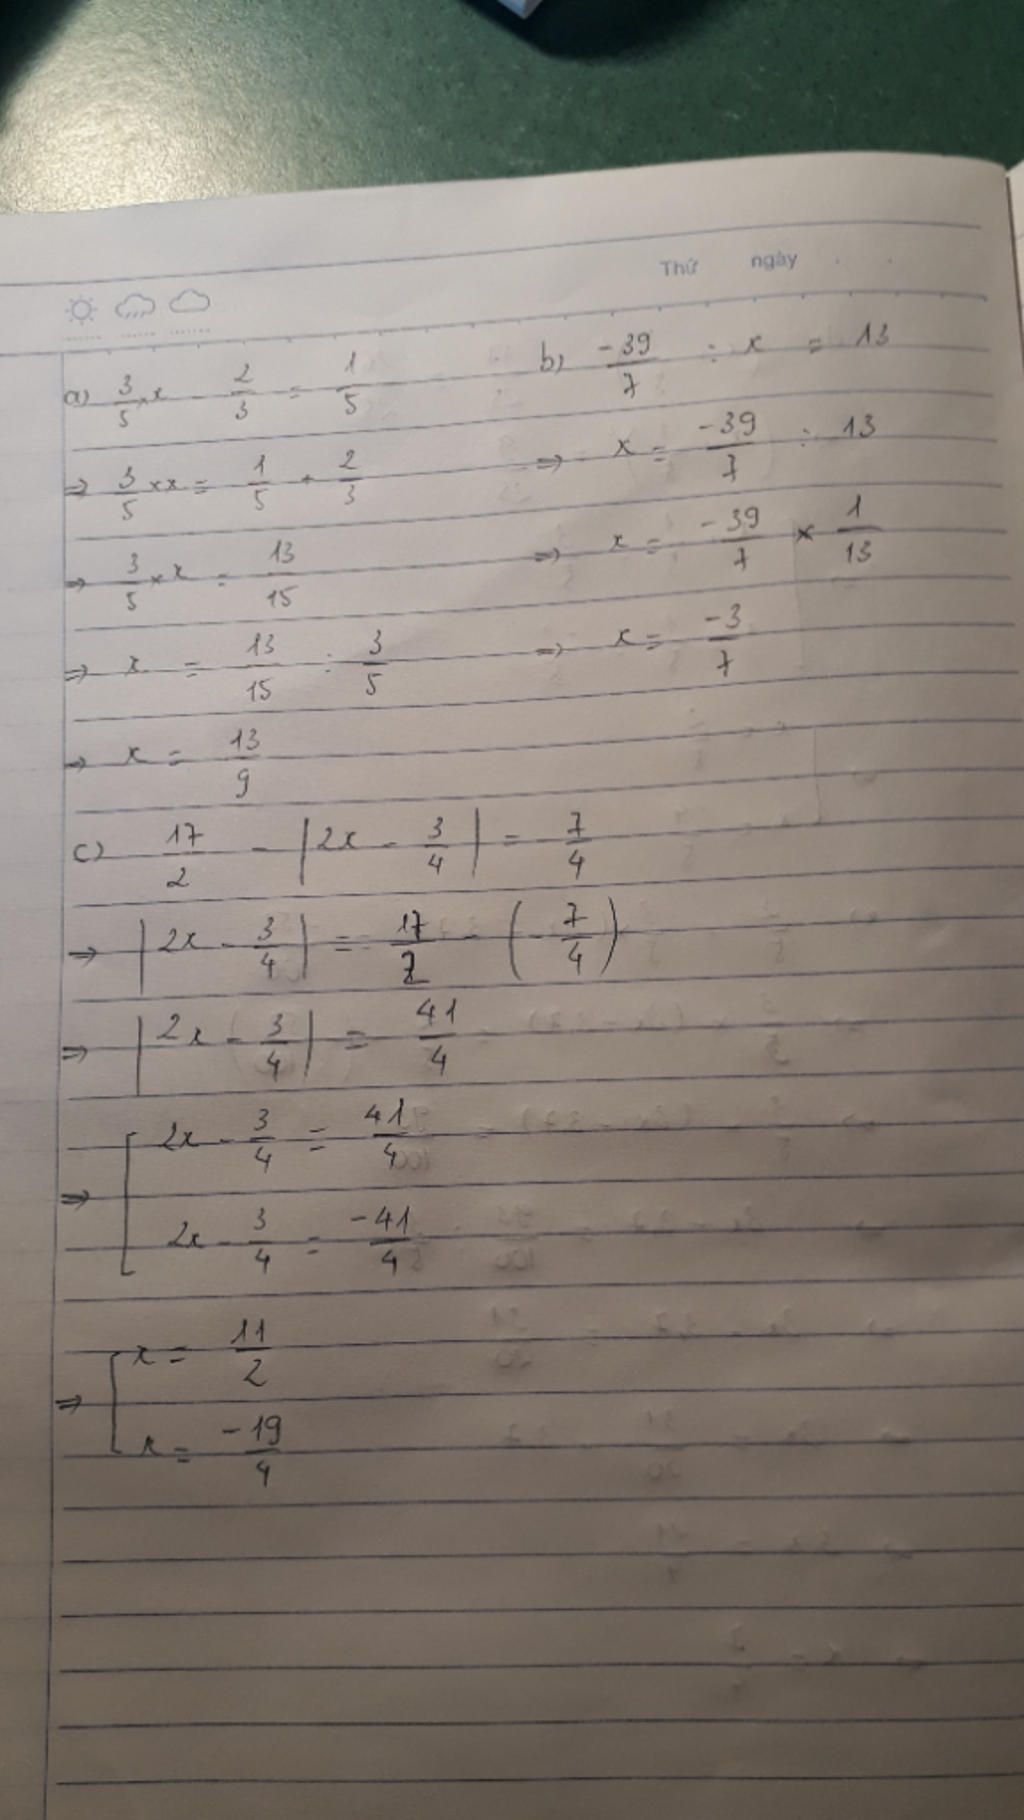 Thứ ngày
a) 3/5 × x - 2/3 = 1/5
⇒ 3/5 × x = 1/5 + 2/3
⇒ 3/5 × x = 13/15
⇒ x = 13/15 : 3/5
⇒ x = 13/9
b) -39/7 : x = 13
⇒ x = -39/7 : 13
⇒ x = -39/7 × 1/13
⇒ x = -3/7
c) 17/2 - |2x - 3/4| = 7/4
⇒ |2x - 3/4| = 17/2 - (-7/4)
⇒ |2x - 3/4| = 41/4
⇒ [ 2x - 3/4 = 41/4
2x - 3/4 = -41/4
⇒ [ x = 11/2
x = -19/4